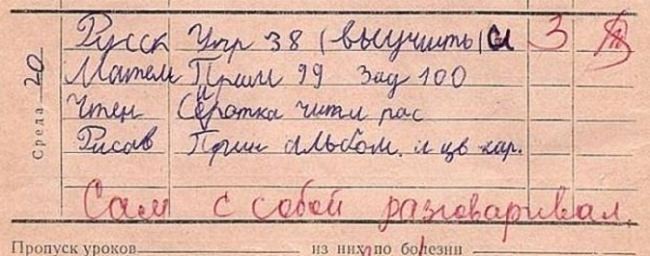 Среда 20
Русск Упр 38 (выучить) 3
Матем Прим 99 Зад 100
Чтен Сиротка читл рас
Рисов Прин альбом. и цв кар.
Сам с собой разговаривал.
Пропуск уроков из них по болезни